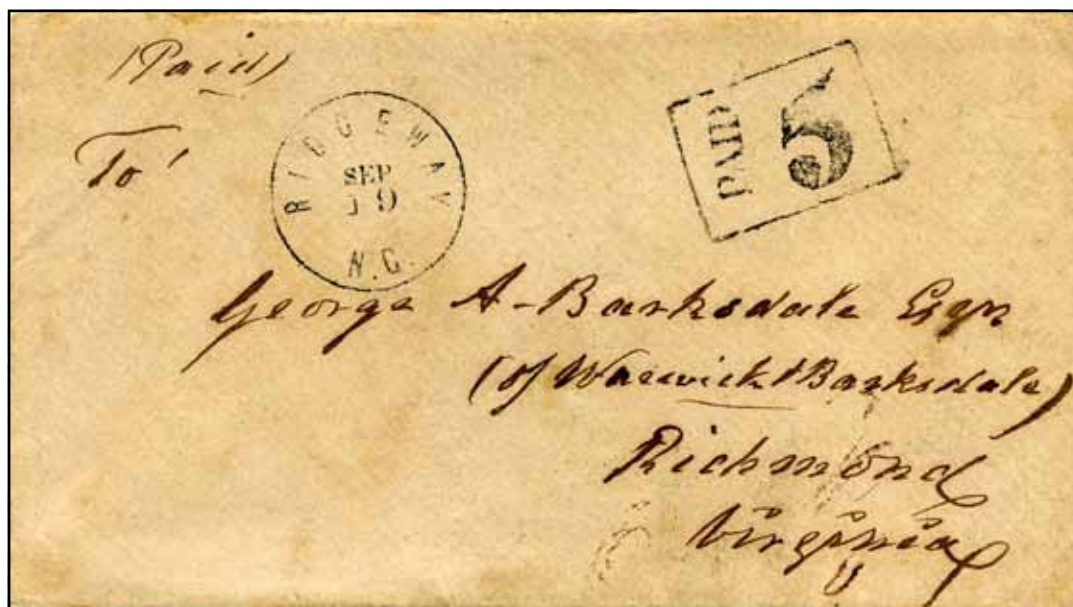 (Paid)
To
RIDGEWAY
SEP
19
N.C.
PAID
5
George A-Barksdale Esqr
(of Warwick & Barksdale)
Richmond
Virginia